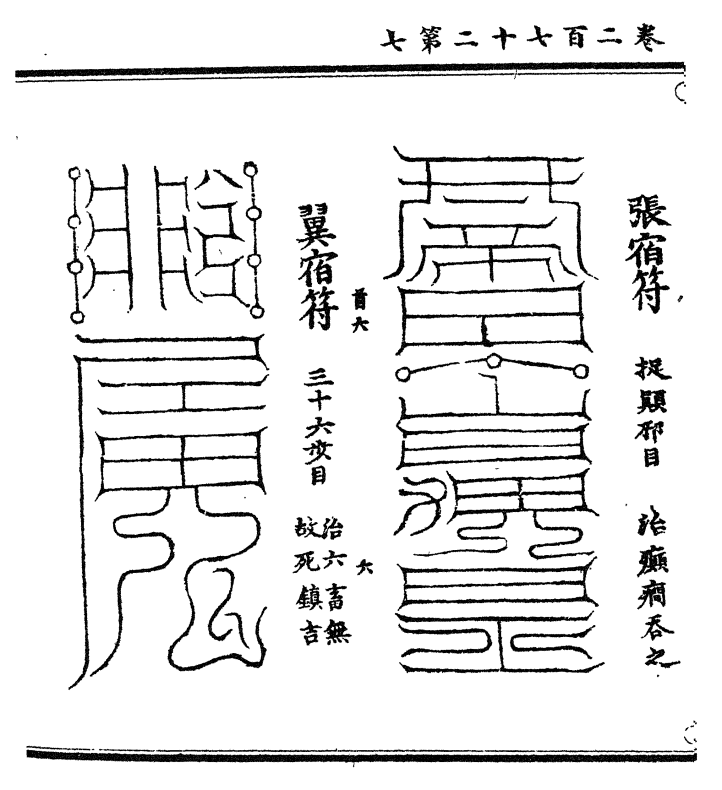 卷二百七十二第七
張宿符
捉顛邪目
治癲癇吞之
首六
翼宿符
三十六步目
治六畜無
故死鎮吉
六